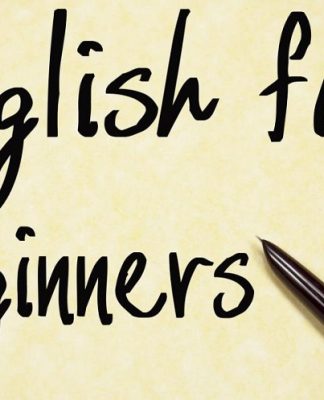 glish fo
ginners